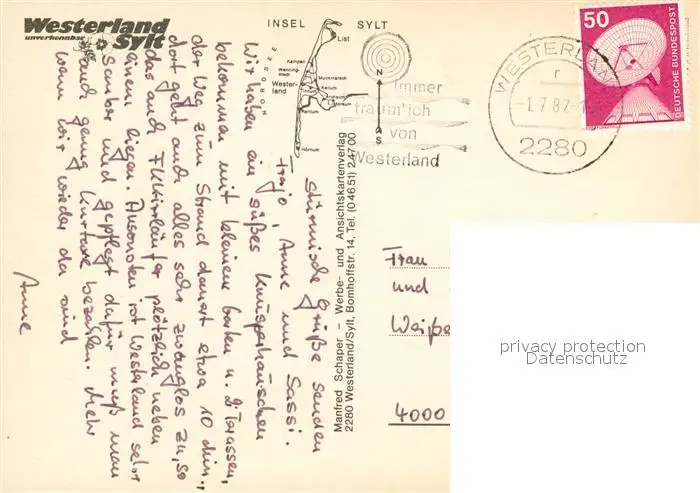 Westerland
unverkennbar Sylt
INSEL SYLT
List
Kampen
Wenning-
stedt
Wester-
land
Munkmarsch
Keitum
Morsum
Rantum
Hörnum
NORDSEE
N
S
Immer
träum' ich
von
Westerland
WESTERLAND
1.7.82
2280
50
DEUTSCHE BUNDESPOST
Stürmische Grüße senden
Frajo, Anne und Sassi.
Wir haben ein süßes Knusperhäuschen
bekommen mit kleinem Garten u. 2 Terassen,
der Weg zum Strand dauert etwa 10 Min.,
dort geht auch alles sehr zwanglos zu, so
das auch FKKler plötzlich neben
einem liegen. Ansonsten ist Westerland sehr
sauber und gepflegt dafür muß man
auch genug Kurtaxe bezahlen. Mehr
wenn wir wieder da sind
Anne
Manfred Schaper – Werbe- und Ansichtskartenverlag
2280 Westerland/Sylt, Bomhoffstr. 14, Tel. (04651) 24700
Frau
und
Weiße
4000
privacy protection
Datenschutz